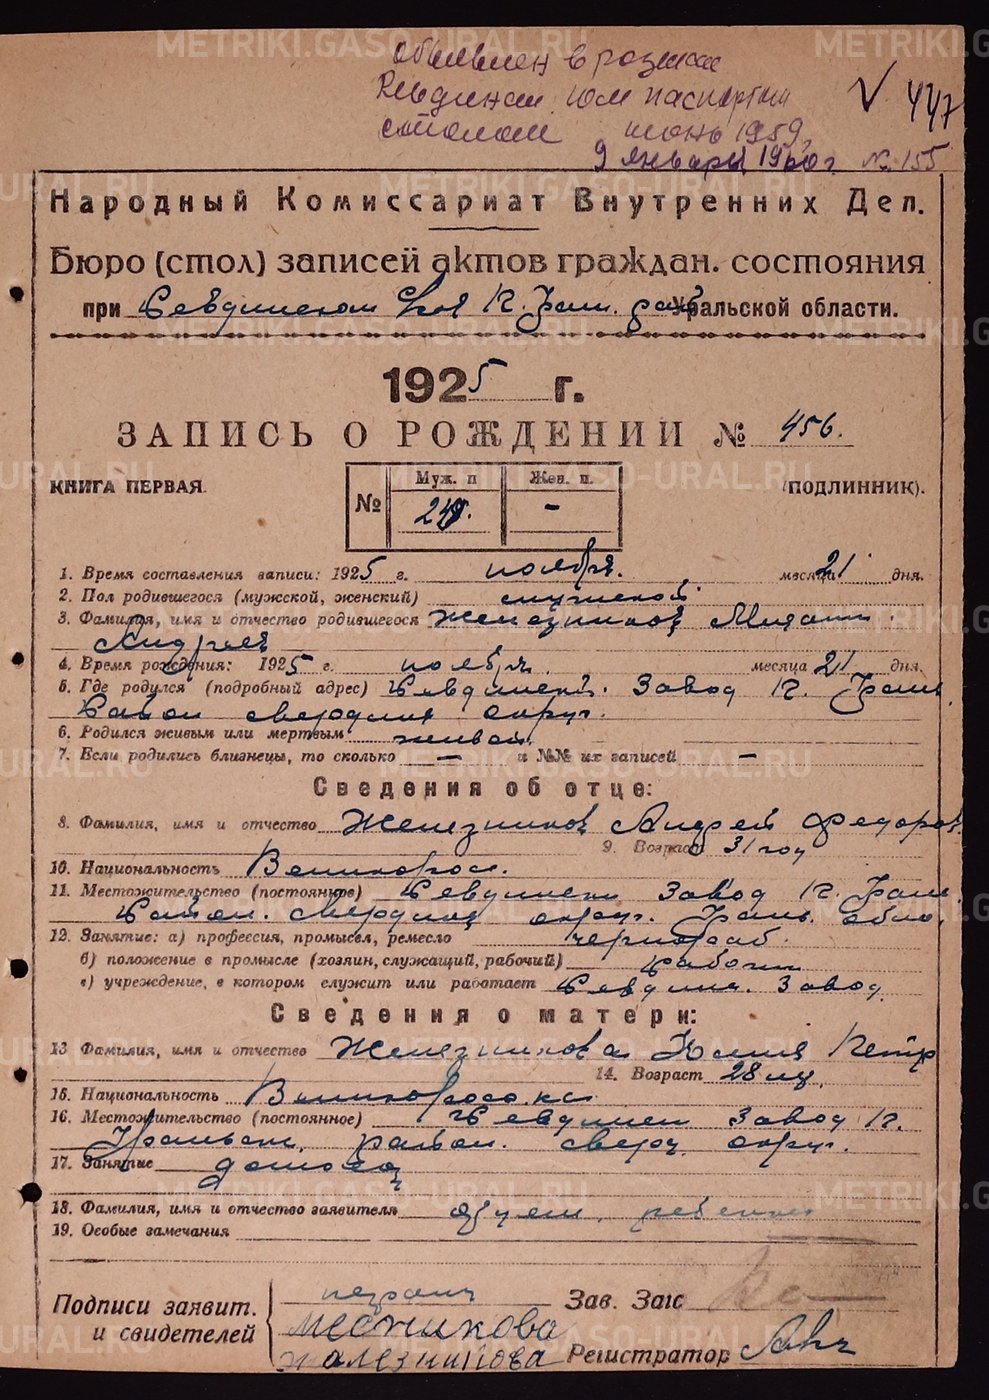 Объявлен в розыск
Ревдинским гом паспортным
столом июнь 1959г.
V 447
9 января 1960 г. № 155
Народный Комиссариат Внутренних Дел.
Бюро (стол) записей актов граждан. состояния
при Уральской области.
1925 г.
ЗАПИСЬ О РОЖДЕНИИ № 456.
КНИГА ПЕРВАЯ. (ПОДЛИННИК).
№ Муж. п Жен. п.
-
1. Время составления записи: 1925 г. ноября. месяца 21 дня.
2. Пол родившегося (мужской, женский) мужской
3. Фамилия, имя и отчество родившегося Железников
Андреев
4. Время рождения: 1925 г. ноября. месяца 21 дня.
5. Где родился (подробный адрес) Ревдинск. Завод К. Урал
Район свердлив округ.
6. Родился живым или мертвым живой.
7. Если родились близнецы, то сколько — и №№ их записей —
Сведения об отце:
8. Фамилия, имя и отчество Железников Андрей Федоров
9. Возраст 31 год
10. Национальность Великоросс.
11. Местожительство (постоянное) Ревдинск Завод К. Урал.
Район. свердлив округ. Урал. обла.
12. Занятие: а) профессия, промысел, ремесло чернораб.
в) положение в промысле (хозяин, служащий, рабочий) рабочий
с) учреждение, в котором служит или работает Ревдинск. Завод
Сведения о матери:
13 Фамилия, имя и отчество Железникова Юлия Петр
14. Возраст 28
15. Национальность
16. Местожительство (постоянное) Ревдинск Завод К.
Уральск. район. сверд. округ.
17. Занятие домохоз
18. Фамилия, имя и отчество заявителя
19. Особые замечания
Подписи заявит.
и свидетелей
Местникова
Жалезникова
Зав. Загс
Регистратор
METRIKI.GASO-URAL.RU